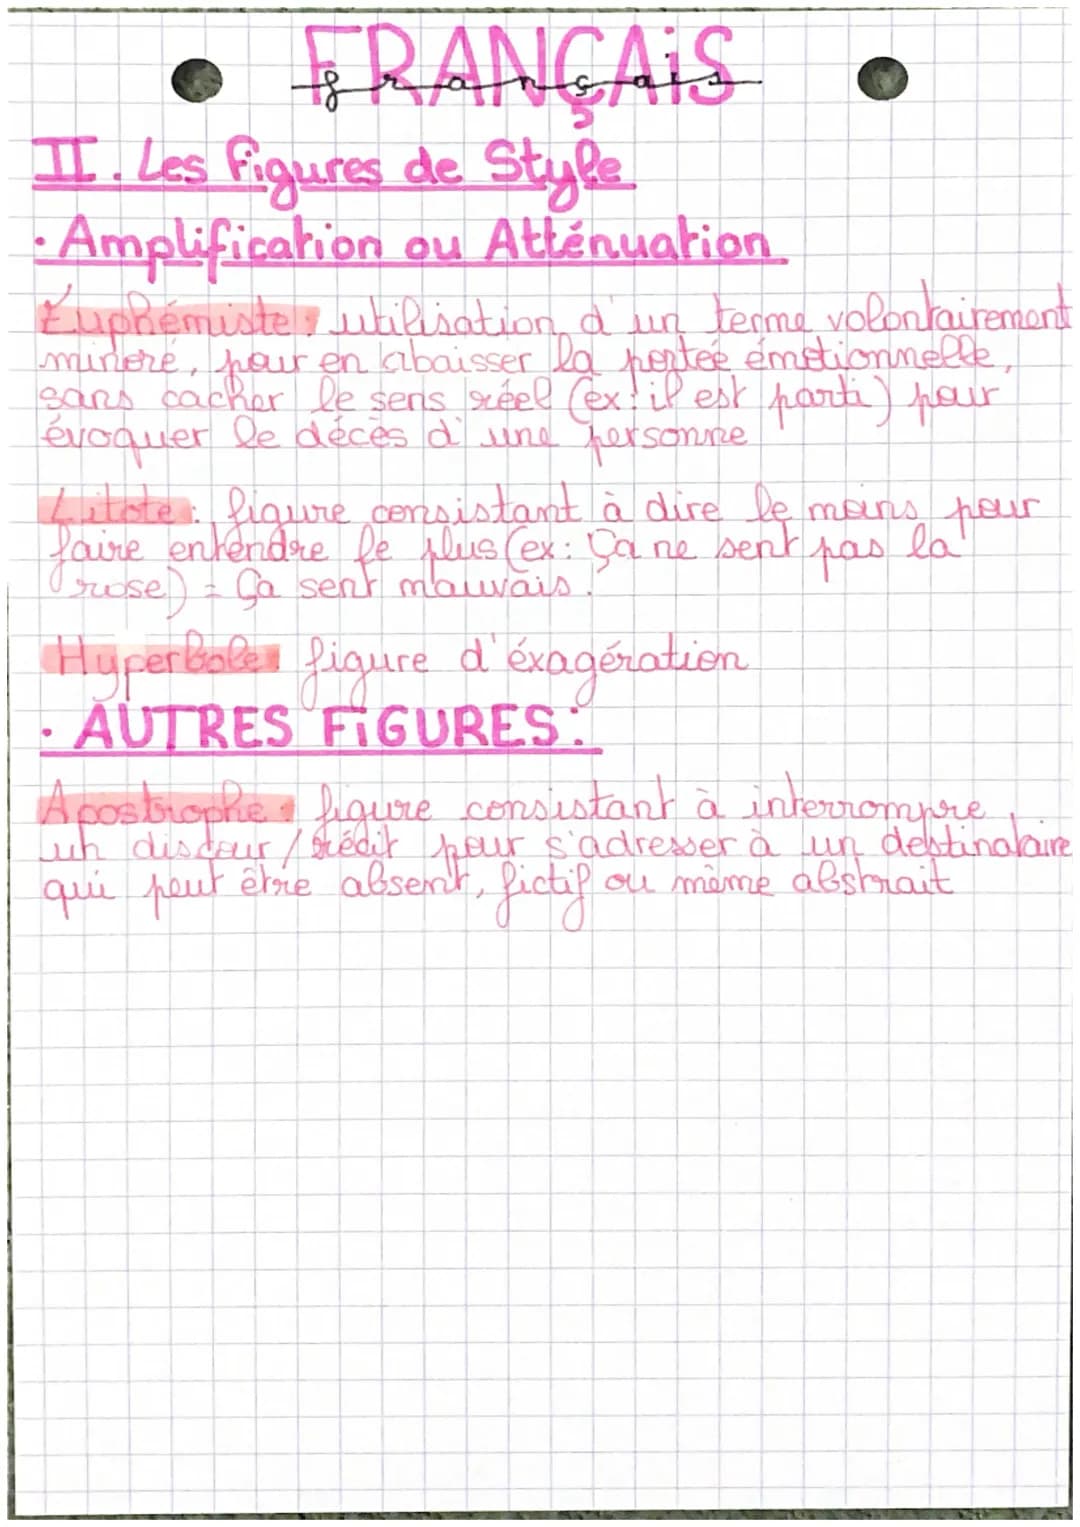 FRANÇAiS
français
II. Les figures de Style
· Amplification ou Atténuation
Euphémiste : utilisation d'un terme volontairement
minoré, pour en abaisser la portée émotionnelle,
sans cacher le sens réel (ex: il est parti) pour
évoquer le décès d'une personne
Litote : figure consistant à dire le moins pour
faire entendre le plus (ex: Ça ne sent pas la
rose) = Ça sent mauvais.
Hyperbole : figure d'éxagération
· AUTRES FiGURES :
Apostrophe : figure consistant à interrompre
un discour / récit pour s'adresser à un destinataire
qui peut être absent, fictif ou même abstrait